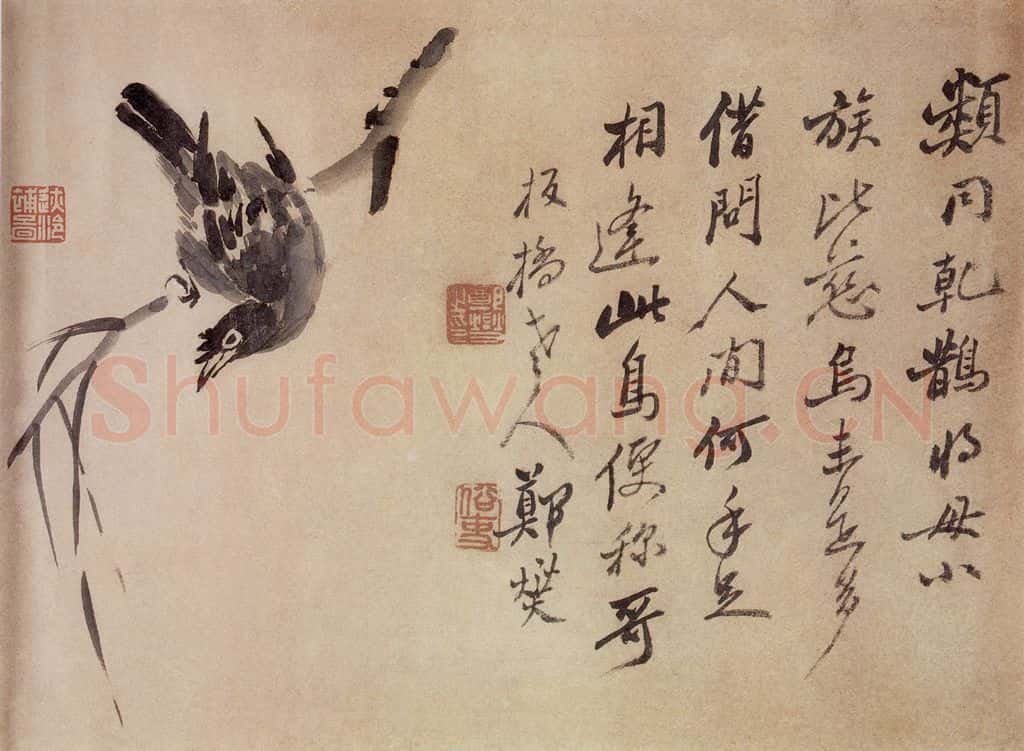 類同乾鵲将母小
族比慈烏未足多
借問人間何手足
相逢此鳥便称哥
板橋老人鄭燮
俗吏
Shufawang.CN